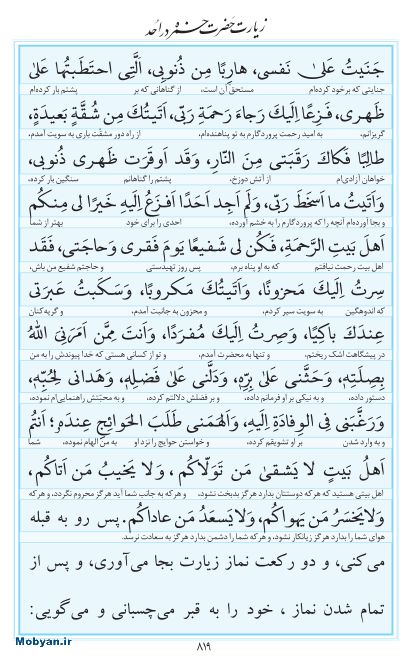 زیارت حضرت حمزه در احد
جَنَیتُ عَلیٰ نَفسی، هارِبًا مِن ذُنوبِی، الَّتِی احتَطَبتُها عَلیٰ
جنایتی که برخود کرده‌ام مستحق آن است، از گناهانی که بر پشتم بار کرده‌ام
ظَهری، فَزِعًا اِلَیكَ رَجاءَ رَحمَةِ رَبّی، اَتَیتُكَ مِن شُقَّةٍ بَعیدَةٍ،
گریزانم، به امید رحمت پروردگارم به تو پناهنده‌ام، از راه دور مشقت باری به سویت آمدم،
طالِبًا فَكاكَ رَقَبَتی مِنَ النّارِ، وَقَد اَوقَرَت ظَهری ذُنوبی،
خواهان آزادی‌ام از آتش دوزخ، پشتم را گناهانم سنگین بار کرده،
وَاَتَیتُ ما اَسخَطَ رَبّی، وَلَم اَجِد اَحَدًا اَفزَعُ اِلَیهِ خَیرًا لی مِنكُم
و بجا آورده‌ام آنچه را که پروردگارم را به خشم آورده، احدی را برای خود بهتر از شما
اَهلَ بَیتِ الرَّحمَةِ، فَكُن لی شَفیعًا یَومَ فَقری وَحاجَتی، فَقَد
اهل بیت رحمت نیافتم که به او پناه برم، پس روز تهیدستی و حاجتم شفیع من باش،
سِرتُ اِلَیكَ مَحزونًا، وَاَتَیتُكَ مَكروبًا، وَسَكَبتُ عَبرَتی
که اندوهگین به سویت سیر کردم، و محزون به جانبت آمدم، و گریه کنان
عِندَكَ باكِیًا، وَصِرتُ اِلَیكَ مُفرَدًا، وَاَنتَ مِمَّن اَمَرَنِی اللهُ
در پیشگاهت اشک ریختم، و تنها به محضرت آمدم، و تو از کسانی هستی که خدا پیوندش را به من
بِصِلَتِهِ، وَحَثَّنی عَلیٰ بِرِّهِ، وَدَلَّنی عَلیٰ فَضلِهِ، وَهَدانی لِحُبِّهِ،
دستور داده، و به نیکی بر او فرمانم داده، و بر فضلش دلالتم کرده، و به محبتش راهنمایی‌ام نموده،
وَرَغَّبَنی فِی الوِفادَةِ اِلَیهِ، وَاَلهَمَنی طَلَبَ الحَوائِجِ عِندَهِ؛ اَنتُم
و به وارد شدن بر او تشویقم کرده، و خواستن حوایج را نزد او به من الهام نموده، شما
اَهلُ بَیتٍ لا یَشقیٰ مَن تَوَلّاكُم، وَلا یَخیبُ مَن اَتاكُم،
اهل بیتی هستید که هر که دوستتان بدارد هرگز بدبخت نشود، و هر که به جانب شما آید هرگز محروم نگردد، و هر که
وَلایَخسَرُ مَن یَهواكُم، وَلایَسعَدُ مَن عاداكُم. پس رو به قبله
هوای شما را بدارد هرگز زیانکار نشود، و هر که شما را دشمن بدارد هرگز به سعادت نرسد.
می‌کنی، و دو رکعت نماز زیارت بجا می‌آوری، و پس از
تمام شدن نماز ، خود را به قبر می‌چسبانی و می‌گویی:
Mobyan.ir
۸۱۹